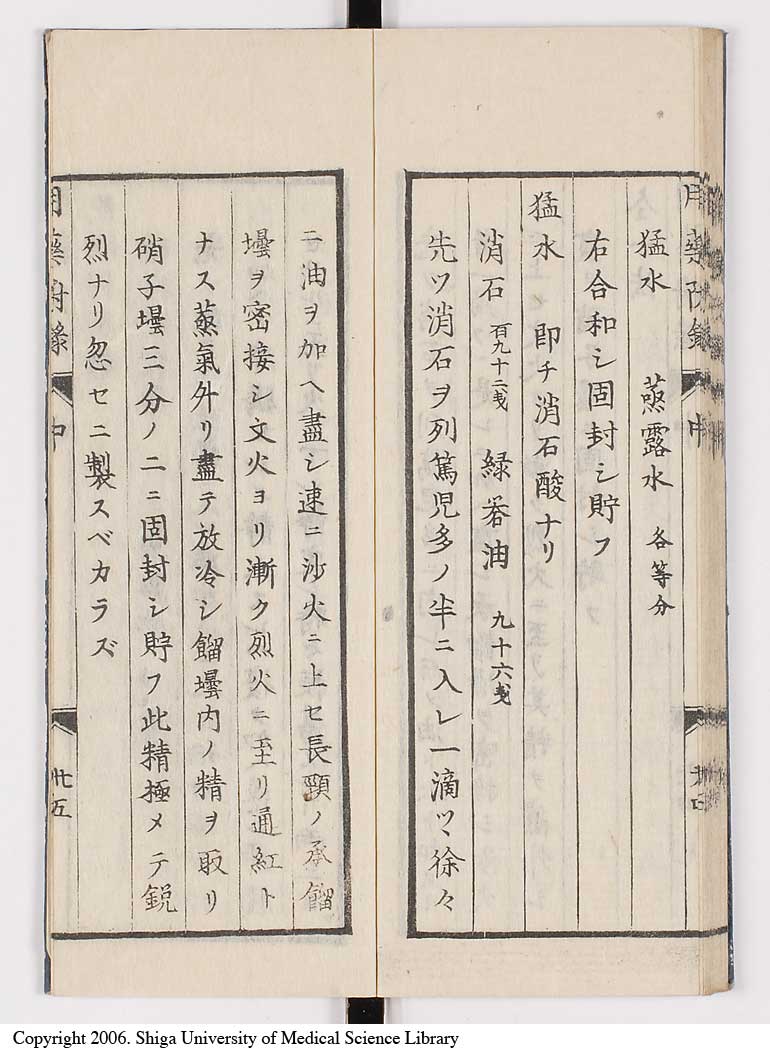 猛水　蒸露水　各等分
右合和シ固封シ貯フ
猛水　即チ消石酸ナリ
消石　百九十二戔　緑礬油　九十六戔
先ツ消石ヲ列篤児多ノ半ニ入レ一滴ツヽ徐々
ニ油ヲ加ヘ盡シ速ニ沙火ニ上セ長頸ノ承餾
壜ヲ密接シ文火ヨリ漸ク烈火ニ至リ通紅ト
ナス蒸氣外リ盡テ放冷シ餾壜内ノ精ヲ取リ
硝子壜三分ノ二ニ固封シ貯フ此精極メテ鋭
烈ナリ忽セニ製スベカラズ
中
廿五
Copyright 2006. Shiga University of Medical Science Library